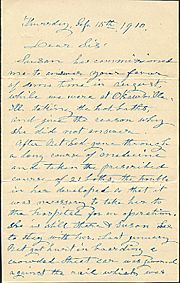 Thursday Sep. 15th, 1910.
Dear Sis:
Susan has commissioned
me to answer your favor
of some time in August
while we were at Okawville
Ill. taking the hot baths,
and give the reason why
she did not answer
After Pet had gone through
a long course of medicine
and taken the prescribed
course of 21 baths, the trouble
in her developed so that it
was necessary to take her to
the hospital for an operation.
She is still there & Susan
is with her. Last January
Pet got hurt in boarding
crowded street car was jammed
against the rail which was